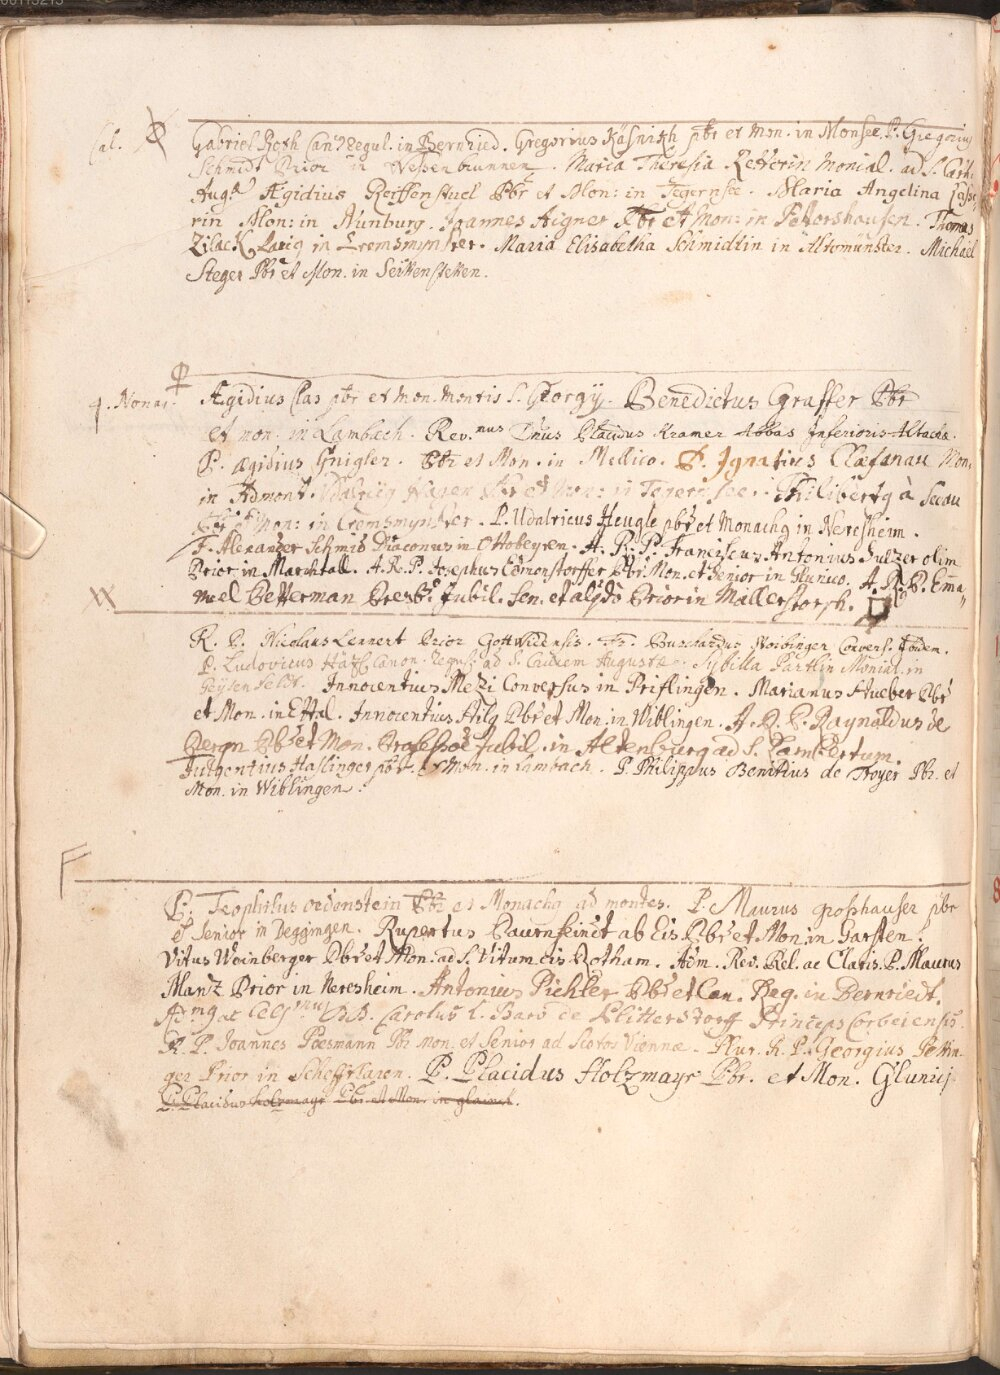 Cal. Gabriel Roth Can: Regul. in Bernried. Gregorius pbr et Mon. in Monsee. P. Gregorius
Schmidt Prior in Wessenbrunnen. Maria Theresia Monial. ad S. Cath.
Aug. Ægidius Reiffenstuel Pbr et Mon: in Tegernsee. Maria Angelina
rin Mon: in Nunburg. Joannes Aigner Pbr et Mon: in Petershausen. Thomas
in Cremsmynster. Maria Elisabetha Schmidtin in Altomünster. Michael
Steger Pbr et Mon. in Seittenstetten.
4. Nonas. Ægidius Clas pbr et Mon. Montis S. Georgÿ. Benedictus Graffer Pbr
et mon. in Lambach. Rev.mus Dnus Placidus Kramer Abbas Inferioris Altacha.
P. Ægidius Gnigler. Pbr et Mon. in Mellico. P. Ignatius Mon.
in Admont. Pbr et Mon: in Tegernsee. Philibertg à Seeau
Pbr et Mon: in Cremsmynster. P. Udalricus Heugle pbr et Monachg in Neresheim.
F. Alexander Schmid Diaconus in Ottobeyren. A. R. P. Franciscus Antonius olim
Prior in Marchtall. A. R. P. Josephus Edmonstorffer Pbr. Mon. et Senior in Glunico. A. R. P. Ema„
nuel Petterman Presb. Jubil. Sen. et Prior in Mallerstorph.
R. P. Nicolaus Lennert Prior Gottwicensis. Fr. Convers. ibidem.
P. Ludovicus Canon. Reguls ad S. Crucem Augustæ. Sybilla Partlin Monial. in
Geysenfeldt. Innocentius Mezi Conversus in Priflingen. Marianus Stueber Pbr
et Mon. in Ettal. Innocentius Hilg Pbr et Mon. in Wiblingen. A. R. P. Raynaldus de
Pergn Pbr et Mon. Professor Jubil. in Altenburg ad S. Lambertum.
Fulgentius Haslinger pbr et Mon. in Lambach. P. Philippus Benitius de Troyer Pbr. et
Mon. in Wiblingen.
F
P. Teophilus Oedenstein Pbr et Monachg ad montes. P. Maurus Groshauser pbr
et Senior in Deggingen. Rupertus Paurnfeindt ab Eis Pbr et Mon in Garsten.
Vitus Weinberger Pbr et Mon: ad S. Vitum cis Rotham. Adm. Rev. Rel. ac Claris. P. Maurus
Manz Prior in Neresheim. Antonius Pichler Pbr et Can. Reg. in Bernriedt.
ac Carolus L. Baro de Blitterstorff Princeps Corbeiensis.
R. P. Joannes Poesmann Pbr Mon. et Senior ad Scotos Viennæ. Plur. R. P. Georgius Pottin„
ger Prior in Scheffrlaren. P. Placidus Holzmayr Pbr. et Mon. Glunicj.
P. Placidus holzmayr Pbr. et Mon. in glainck.